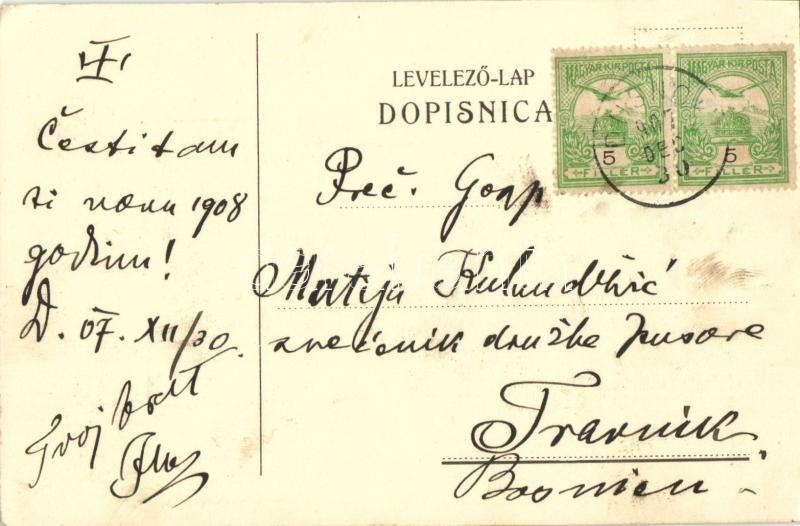 Čestitam
ti novu 1908
godinu!
D. 07. XII/30.
Tvoj brat
LEVELEZŐ-LAP
DOPISNICA
MAGYAR·KIR·POSTA
5
FILLER
MAGYAR·KIR·POSTA
5
FILLER
907
DEC
30
Preč. Gosp
Matija
svećenik družbe Isusove
Travnik
Bosnien.